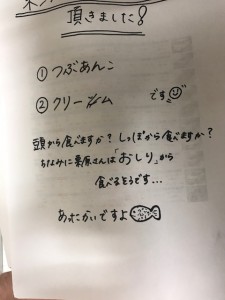 頂きました!
①つぶあんこ
②クリーム です
頭から食べますか?しっぽから食べますか?
ちなみに栗原さんは「おしり」から
食べるそうです…
あったかいですよ